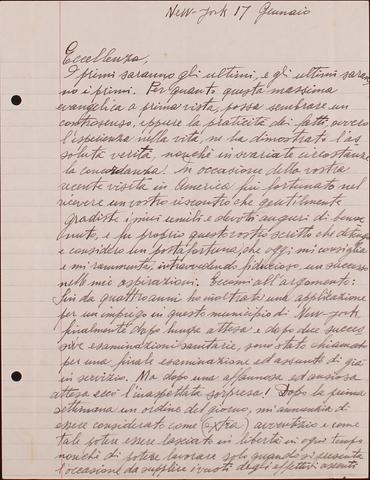 New-York 17 Gennaio
Eccellenza,
I primi saranno gli ultimi, e gli ultimi saran
no i primi. Per quanto questa massima
evangelica a prima vista, possa sembrare un
controsenso, eppure la praticità dei fatti, ovvero
l'esperienza nella vita, ne ha dimostrato l'as
soluta verità, nonchè in svariate circostanze
la concordanza. In occasione della vostra
recente visita in America fui fortunato nel
ricevere un vostro riscontro che gentilmente
gradiste i miei umili e devoti auguri di benve
nuto, e fu proprio questo vostro scritto che detengo
e considero un portafortuna, che oggi mi consiglia
e mi rammenta, intravedendo fiducioso, un successo
nelle mie aspirazioni. Eccomi all'argomento:
Sin da quattro anni ho inoltrato una applicazione
per un impiego in questo municipio di New-York
finalmente dopo lunga attesa e dopo due succes
sive esaminazioni sanitarie, sono stato chiamato
per una finale esaminazione ed assunto di già
in servizio. Ma dopo una affannosa ed ansiosa
attesa ecco l'inaspettata sorpresa! Dopo la prima
settimana un ordine del giorno, mi annunzia di
essere considerato come (extra) avventizio e come
tale potere essere lasciato in libertà in ogni tempo
nonchè di potere lavorare solo quando si presenta
l'occasione da supplire i vuoti degli effettivi assenti